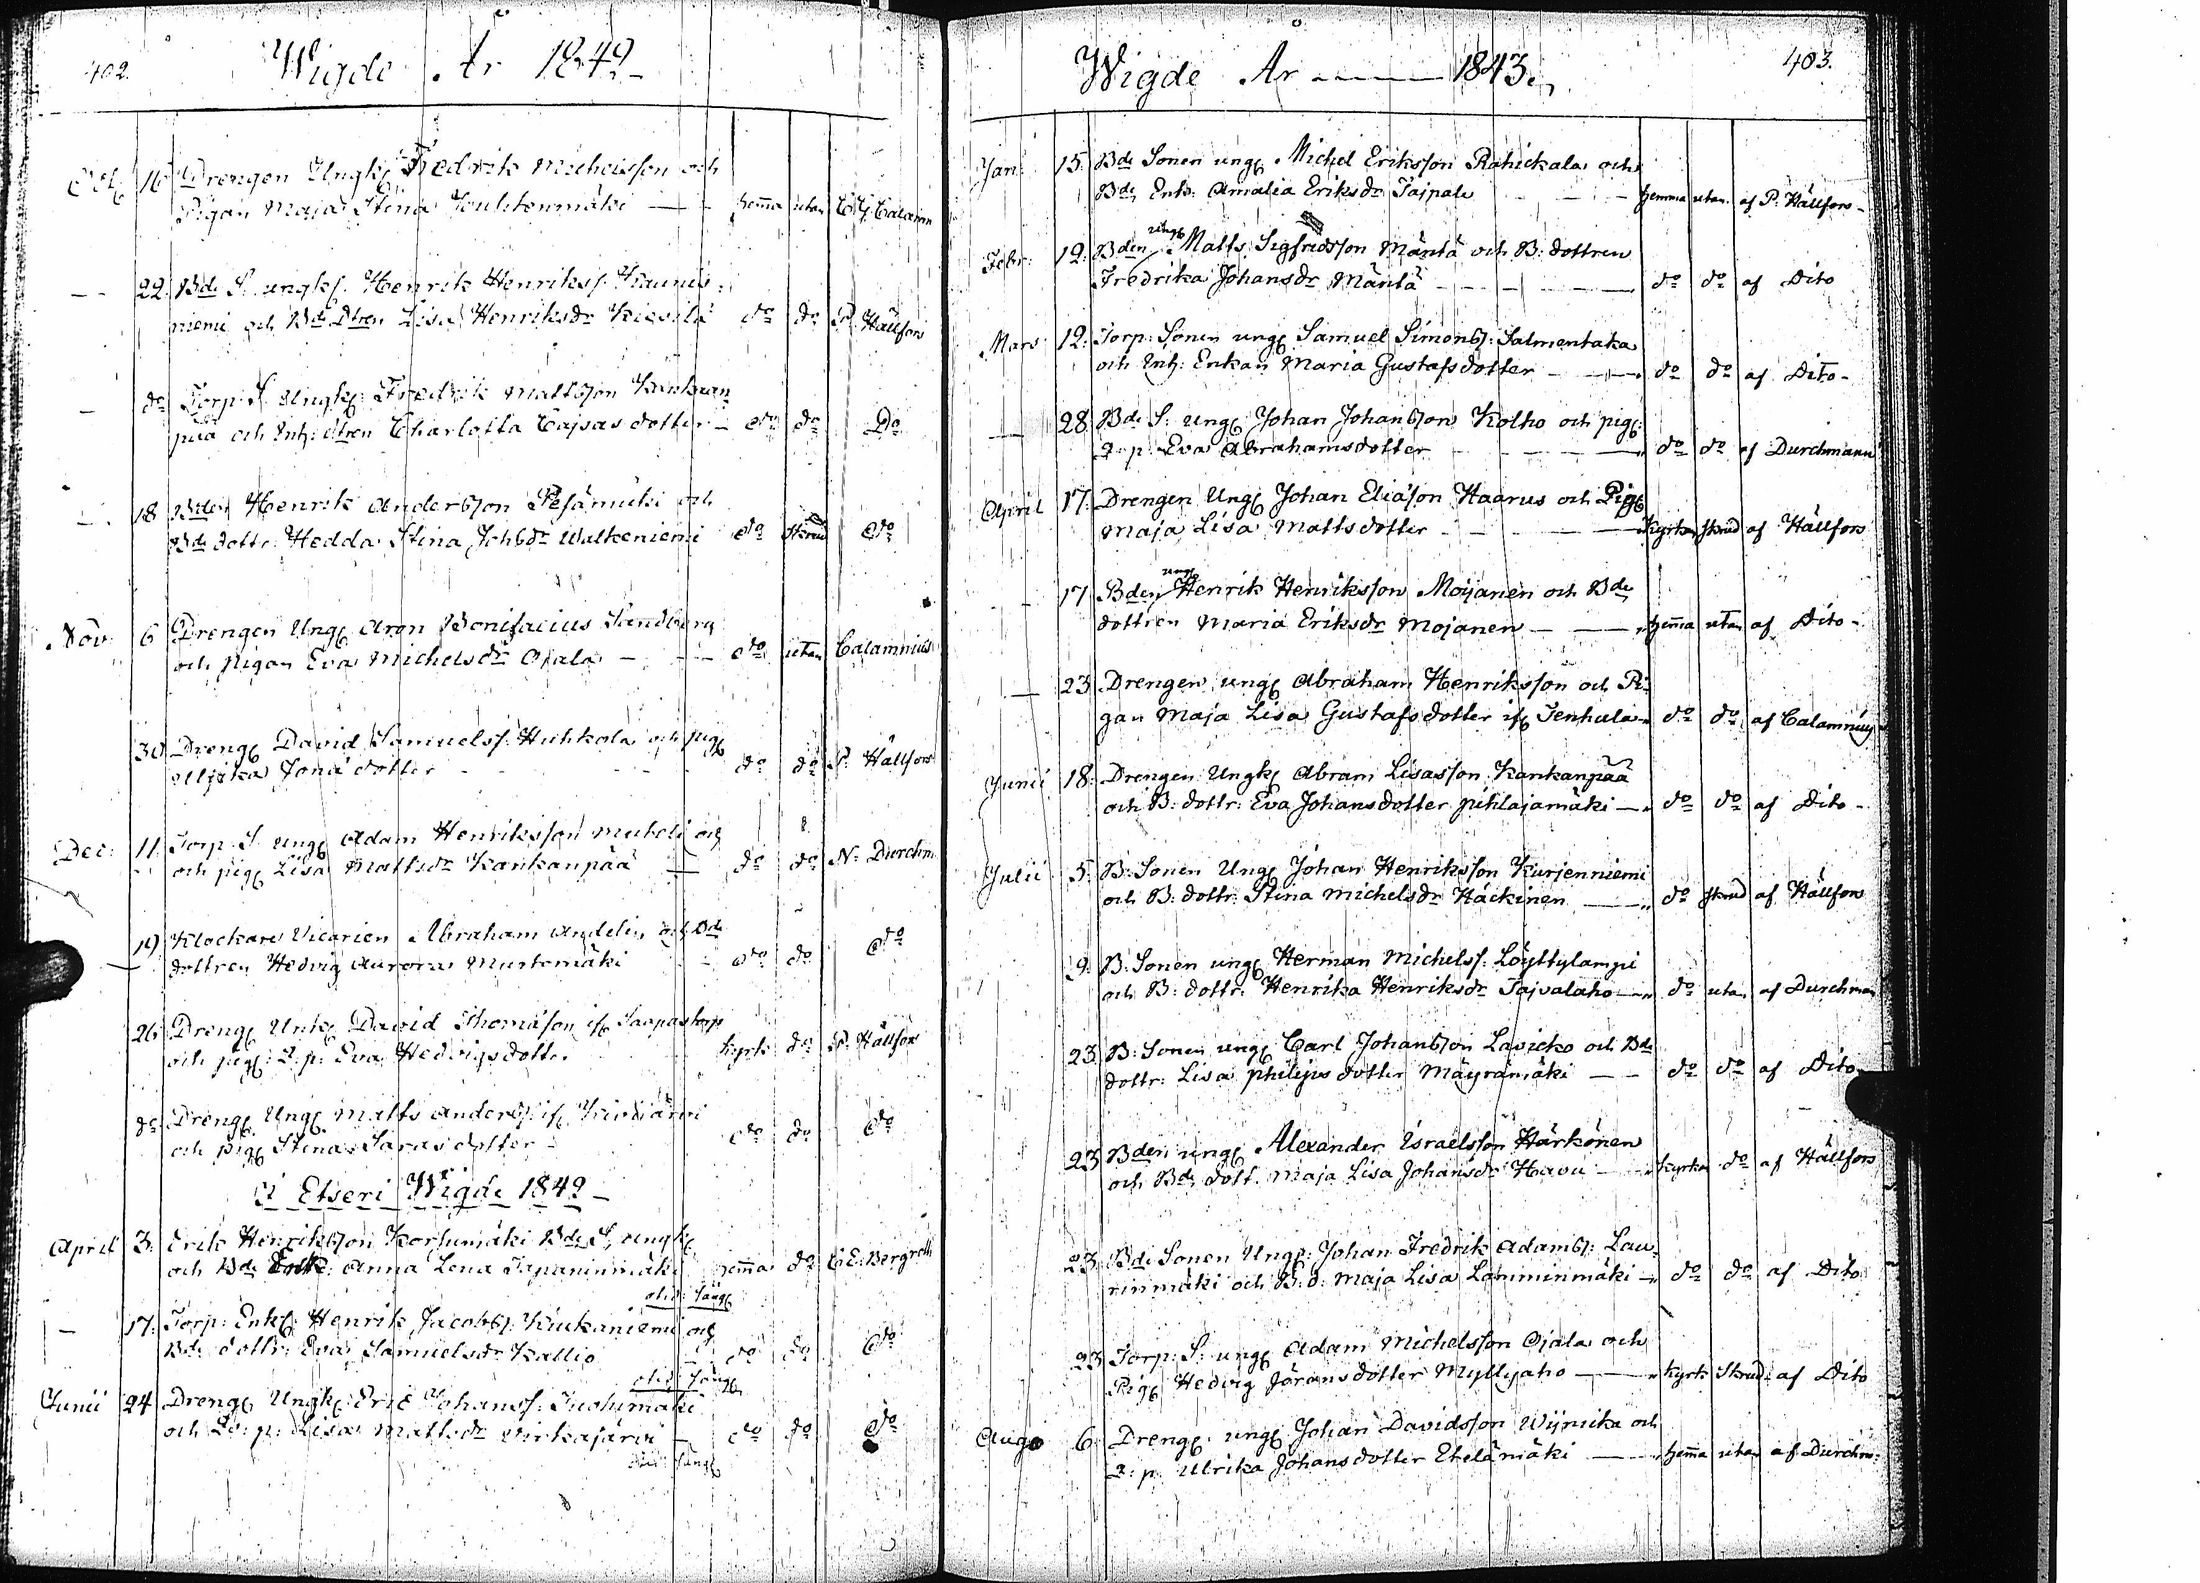 402.
Wigde År 1842
Oct. 16 Drengen Ungk. Fredrik Michelsson och
Pigan Maja Stina Jouhtenmäki — hemma utan C G Calamn
— 22. Bde S. ungk. Henrik Henrikss. Kaunis:
niemi och Bde Dtren Lisa Henriksdr Kiesilä do do P. Hällfors
— do Torp: S. Ungk. Fredrik Mattsson Kankaan
pää och Inh: dtren Charlotta Cajsas dotter — do do Do
— 18 Bden Henrik Andersson Pesämäki och
Bde dottr. Hedda Stina Johsdr Walkeniemi do skrud do
Nov: 6 Drengen Ung. Aron Bonifacius Sandberg
och pigan Eva Michelsdr Ojala — do utan Calamnius
30 Dreng. David Samuelss. Huhkola och pig.
Ulrika Jonä dotter do do P. Hällfors
Dec: 11. Torp: S. ung. Adam Henriksson och
och pig. Lisa Mattsdr Kankanpää do do N. Durchm.
— 19 Klockare Vicarien Abraham Andelin och Bde
dottren Hedvig Aurora Mustamäki do do do
26 Dreng. Unk. David Thomasson if.
och pig. I. p. Eva Hedvigsdotter Kyrk do P. Hällfors
do Dreng. Ung. Matts Anders. if. Kivijärvi
och pig. Stina Saras dotter do do do
i Etseri Wigde 1842
April 3. Erik Henriksson Korsumäki Bde S. ungk.
och Bde Anna Lena Tapaninmäki hemma do C E: Bergroth
— 17. Torp: Enk. Henrik Jacobs. Kiukaniemi och
Bde dottr. Eva Samuelsdr Kallio do do do
Junii 24 Dreng. Ungk. Eric Johanss. Tuohimäki
och Lisa Mattsdr Virkajärvi — do do do
403.
Wigde År ——— 1843.
Jan: 15. Bde Sonen ung. Michel Eriksson Rahickala och
Bde Enk: Amalia Eriksdr Taipale hemma utan af P. Hällfors –
Febr: 12. Bden ung. Matts Sigfridsson Mäntä och B: dottren
Fredrika Johansdr Mäntä do do af Dito
Mars 12. Torp: Sonen ung. Samuel Simons. Salmentaka
och Inh: Enkan Maria Gustafsdotter do do af Dito –
— 28. Bde S. ung. Johan Johansson Kolho och pig.
I. p. Eva Abrahamsdotter do do af Durchmann
April 17. Drengen Ung. Johan Eliason Haarus och Pig.
Maja Lisa Mattsdotter Kyrkan skrud af Hällfors
- 17. Bden ung. Henrik Henriksson Moijanen och Bde
dottren Maria Eriksdr Mojanen — hemma utan af Dito –
— 23 Drengen ung. Abraham Henriksson och Pi-
gan Maja Lisa Gustafsdotter if. Tenhula do do af Calamnius
Junii 18. Drengen Ungk. Abram Lisasson Kankanpää
och B: dottr: Eva Johansdotter Pihlajamäki — do do af Dito –
Julii 5. B: Sonen Ung. Johan Henriksson Kurjenniemi
och B: dottr. Stina Michelsdr Häckinen — do skrud af Hällfors
9. B: Sonen ung. Herman Michelss. Löyttylampi
och B: dottr. Henrika Henriksdr Taivalaho — do utan af Durchman
23 B: Sonen ung. Carl Johansson Lavicko och Bde
dottr: Lisa Philipus dotter Mäyrämäki — do do af Dito
23 Bden ung. Alexander Israelsson Härkönen
och Bde dott. Maja Lisa Johansdr Havu — Kyrkan do af Hällfors
23 Bde Sonen Ung. Johan Fredrik Adams. Lau-
rinmäki och B. d: Maja Lisa Lamminmäki — do do af Dito
23 Torp: S. ung. Adam Michelsson Ojala och
Pig. Hedvig Jörans dotter Myllyaho — Kyrk Skrud af Dito
Aug. 6. Dreng. ung. Johan Davidsson Wijnika och
I. p. Ulrika Johansdotter Etelämäki — hemma utan af Durchm: